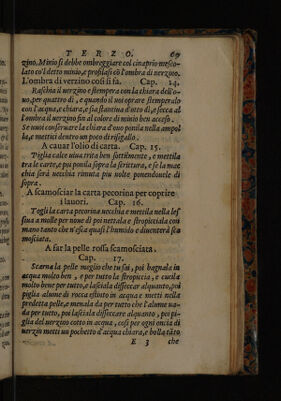 TERZO. 69
zino. Minio si debbe ombreggiare col cinaprio mesco-
lato co'l detto minio, e profilasi cō l'ombra di verzino.
L'ombra di verzino cosi si fa. Cap. 14.
Raschia il verzino e stempera con la chiara dell'o-
uo, per quattro dì, e quando il uoi oprare stemperalo
con l'acqua, e chiara, e sia stantiua d'otto dì, e secca al
l'ombra il uerzino fin al colore di minio ben acceso.
Se uuoi conseruare la chiara d'ouo ponila nella ampol
la, e mettici dentro un poco di risigallo.
A cauar l'olio di carta. Cap. 15.
Piglia calce uiua trita ben sottilmente, e mettila
tra le carte, e poi ponila sopra la scrittura, e se la mac
chia serà uecchia rimuta piu uolte ponendouele di
sopra.
A scamosciar la carta pecorina per coprire
i lauori. Cap. 16.
Togli la carta pecorina uecchia e mettila nella les
siua a molle per noue dì poi nettala e stropicciala con
mano tanto che n'esca quasi l'humido e diuenterà sca
mosciata.
A far la pelle rossa scamosciata.
Cap. 17.
Scarna la pelle meglio che tu sai, poi bagnala in
acqua molto ben, e per tutto la stropiccia, e cucila
molto bene per tutto, e lasciala disseccar alquanto, poi
piglia alume di rocca estinto in acqua e metti nella
predetta pelle, e menala da per tutto che l'alume ua-
da per tutto, poi lasciala disseccare alquanto, poi pi-
glia del uerzino cotto in acqua, cosi per ogni oncia di
uerzin metti un pochetto d'acqua chiara, e bollo tāto
E 3 che